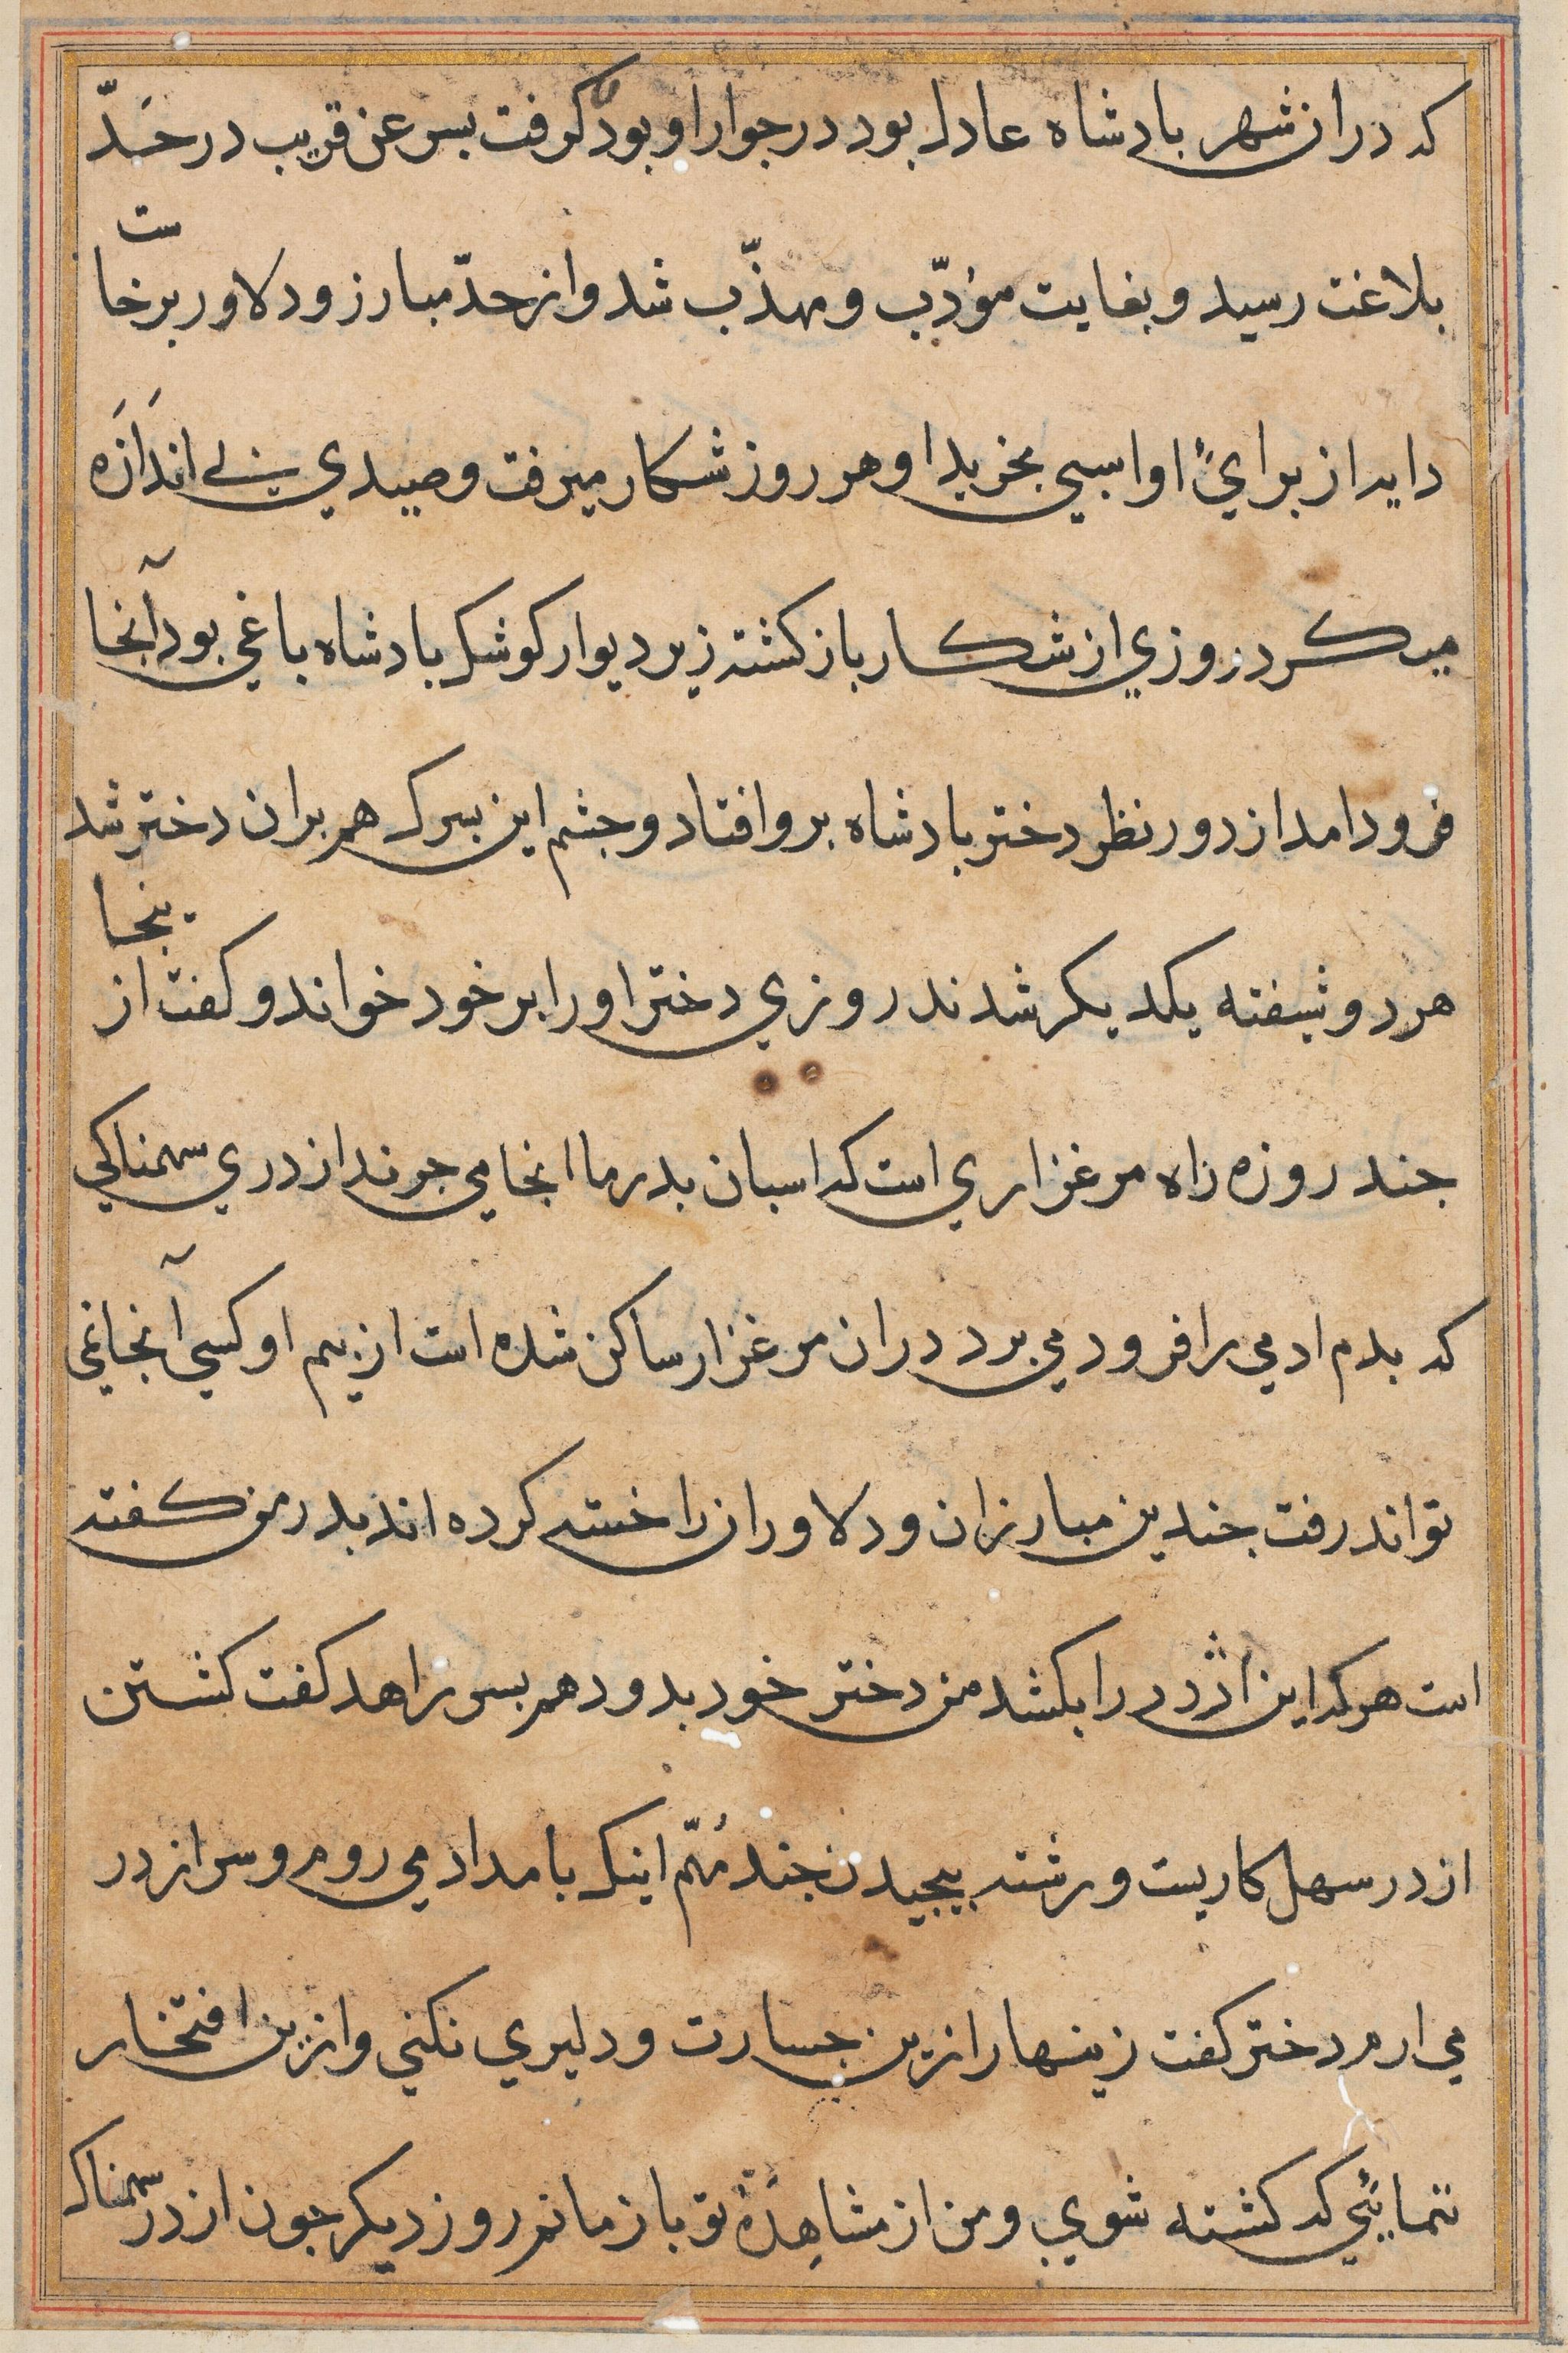 که دران شهر بادشاه عادل بود در جوار او بود کرفت بسر عن قریب در حَدّ
بلاغت رسید و بغایت مؤدّب و مهذّب شد و از حدّ مبارز و دلاور برخاست
دایه از برایٔ او اسبی بخرید او هر روز شکار میرفت و صیدی بی اندَازَه
میکرد روزی از شکار باز کشته زیر دیوار کوشک بادشاه باغی بود آنجا
فرود امد از دور نظر دختر بادشاه برو افتاد و جشم این بسرک هم بران دختر شد
هر دو شیفته یکدیکر شدند روزی دختر او را بر خود خواند و کفت از ینجا
جند روزه راه مرغزاری است که اسبان بدر ما انجا می جرند ازدری سهمناکی
که بدم ادمی را فرود می برد دران مرغزار ساکن شده است از بیم او کسی آنجا نمی
تواند رفت جندین مبارزان و دلاوران را خسته کرده اند بدر من کفته
است هر که این اژدر را بکشد من دختر خود بدو دهم بسر زاهد کفت کشتن
ازدر سهل کاریست و رشته بیجیدن جند مُهّم اینک بامداد می روم و سر ازدر
می ارم دختر کفت زینهار ازین جسارت و دلیری نکنی و ازین افتخار
ننمایئی که کشته شوی و من از مشاهِدَهٔ تو باز مانم روز دیکر جون ازدر سهمناک